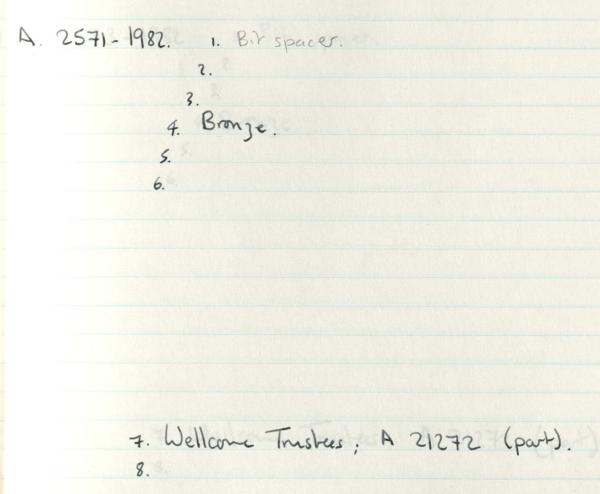 A. 2571-1982. 1. Bit spacer.
2.
3.
4. Bronze.
5.
6.
7. Wellcome Trustees; A 21272 (part).
8.